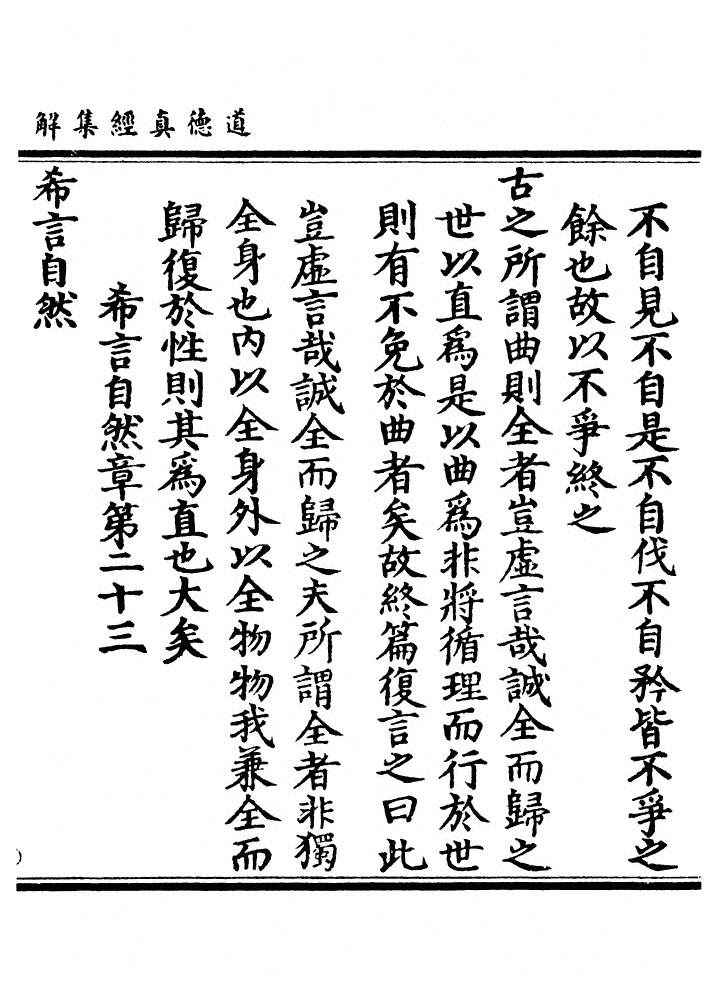 道德真經集解
不自見不自是不自伐不自矜皆不爭之
餘也故以不爭終之
古之所謂曲則全者豈虛言哉誠全而歸之
世以直爲是以曲爲非將循理而行於世
則有不免於曲者矣故終篇復言之曰此
豈虛言哉誠全而歸之夫所謂全者非獨
全身也內以全身外以全物物我兼全而
歸復於性則其爲直也大矣
希言自然章第二十三
希言自然